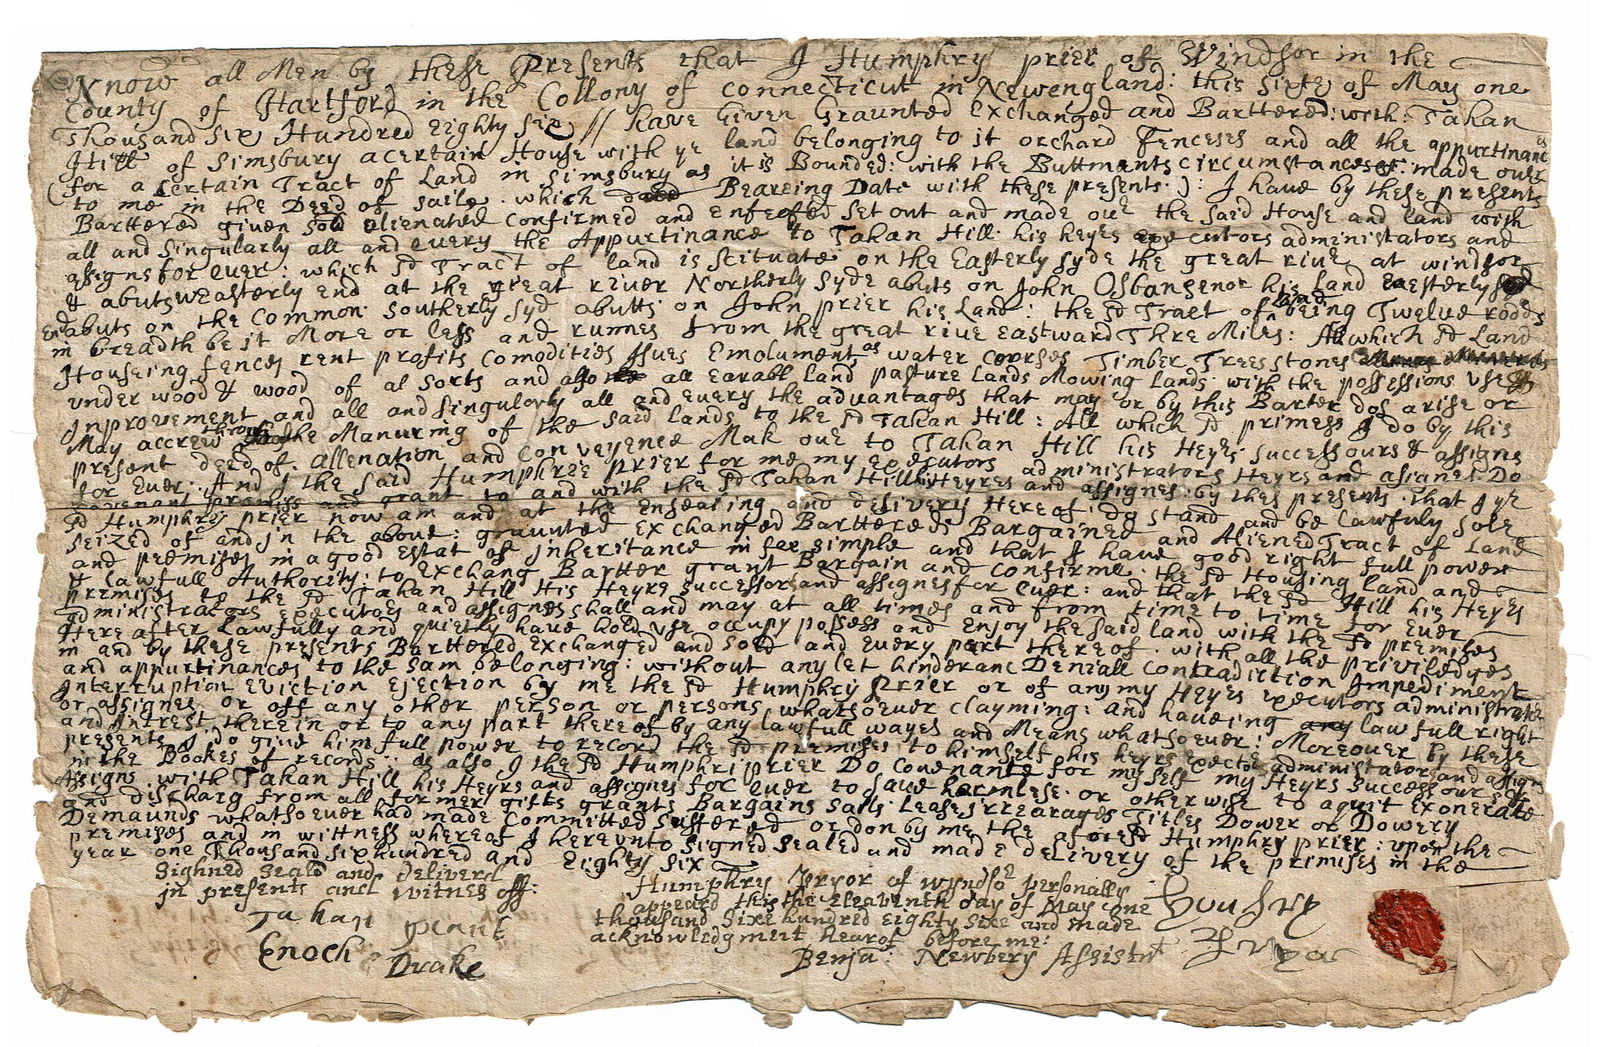 Know all Men by these Presents that I Humphry prier of Windsor in the
County of Hartford in the Collony of Connecticut in Newengland: this sixte of May one
Thousand Six Hundred Eighty Six // have Given Graunted Exchanged and Barttered: with: Tahan
Hill of Simsbury a certain House with ye land belonging to it orchard Fenceses and all the appurtinances
(for a Certain Tract of Land in Simsbury as it is Bounded: with the Buttmants circumstances made over
to me in the Deed of saile which Beareing Date with these presents.): I have by these presents
Barttered given Sold alienated Confirmed and enfeofed set out and made over the said House and land with
all and Singularly all and every the Appurtinance to Tahan Hill his heyes executors administrators and
assigns for ever: which sd Tract of land is scituate on the Easterly Syde the great river at windsor
& abuts weasterly end at the great river Northerly Syde abuts on John Osban his land Easterly
end abuts on the Common Southerly Syd abutts on John prier his Land: the sd Tract of land being Twelve rodds
in breadth be it More or less and runnes from the great rive eastward Thre Miles: All which sd Land
Houseing fences rent profits Comodities Isues Emolument as water courses Timber Trees stones
under wood & wood of al sorts and also all earabl land pasture lands Mowing lands with the possessions uses
Improvement and all and singulorly all and every the advantages that may or by this Barter dos arise or
May accrew through the Manuring of the said lands to the sd Tahan Hill: All which sd primess I do by this
present deed of allenation and conveyence Mak over to Tahan Hill his Heyes successours & assigns
for ever: And I the said Humphree prier for me my executors administrators Heyrs and asignes Do
Covenant promiss and grant to and with the sd Tahan Hill his Heyres and assignes: by thes presents that I ye
sd Humphry prier now am and at the Ensealing and delivery Hereof do stand and be lawfuly sole
seized of and in the above: graunted Exchanged Barttered Bargained and Aliened Tract of Land
and premises in a good Estat of inheritance in fee simple and that I have good right full power
& lawfull Authority: to Exchang Bartter grant Bargain and confirme the sd Housing land and
premises to the sd Tahan Hill His Heyrs successors and assignes for ever: and that the sd Hill his Heyes
administrators executoes and assignes shall and may at all times and from time to time for ever
Here after lawfully and quietly have hold use occupy possess and enjoy the said land with the sd premises
in and by these presents Barttered Exchanged and Sold and every part thereof with all the priviledges
and appurtinances to the sam belonging: without any let hinderanc Deniall contradiction Impediment
Interruption Eviction Ejection by me the sd Humphry Prier or of any my Heyes executors administrators
or assignes or off any other person or persons whatsoever clayming: and haveing lawfull right
and intrest therein or to any part thereof by any lawfull wayes and Means whatsoever: Moreover by these
presents I do give him full power to record the sd premises to himself his heyrs administators and assigns
in the Bookes of records: as also I the sd Humphri prier Do Covenante for my self my Heyrs successours &
Assigns with Tahan Hill his Heyrs and assignes for ever to save harmlese or other wise to aquit Exonerate
and discharg from all former gifts grants Bargains Sails Lease Irrearages Titles Dower or Dowery
Demaunds whatsoever had made Committed Suffered or don by me the aforesd Humphry prier: upon the
premises and in wittness whereof I hereunto signed sealed and made delivery of the premises in the
year one Thousand six hundred and Eighty six
Sighned Seald and deliverd
in presents and witnes off:
Tahan grant
Enoch Drake
Humphry Pryor of wyndsor personally
appeard this the Eleaventh day of May one
thousand Sixe hundred eighty Sixe and made
acknowledgment hearof before me:
Benja: Newbery Assistnt